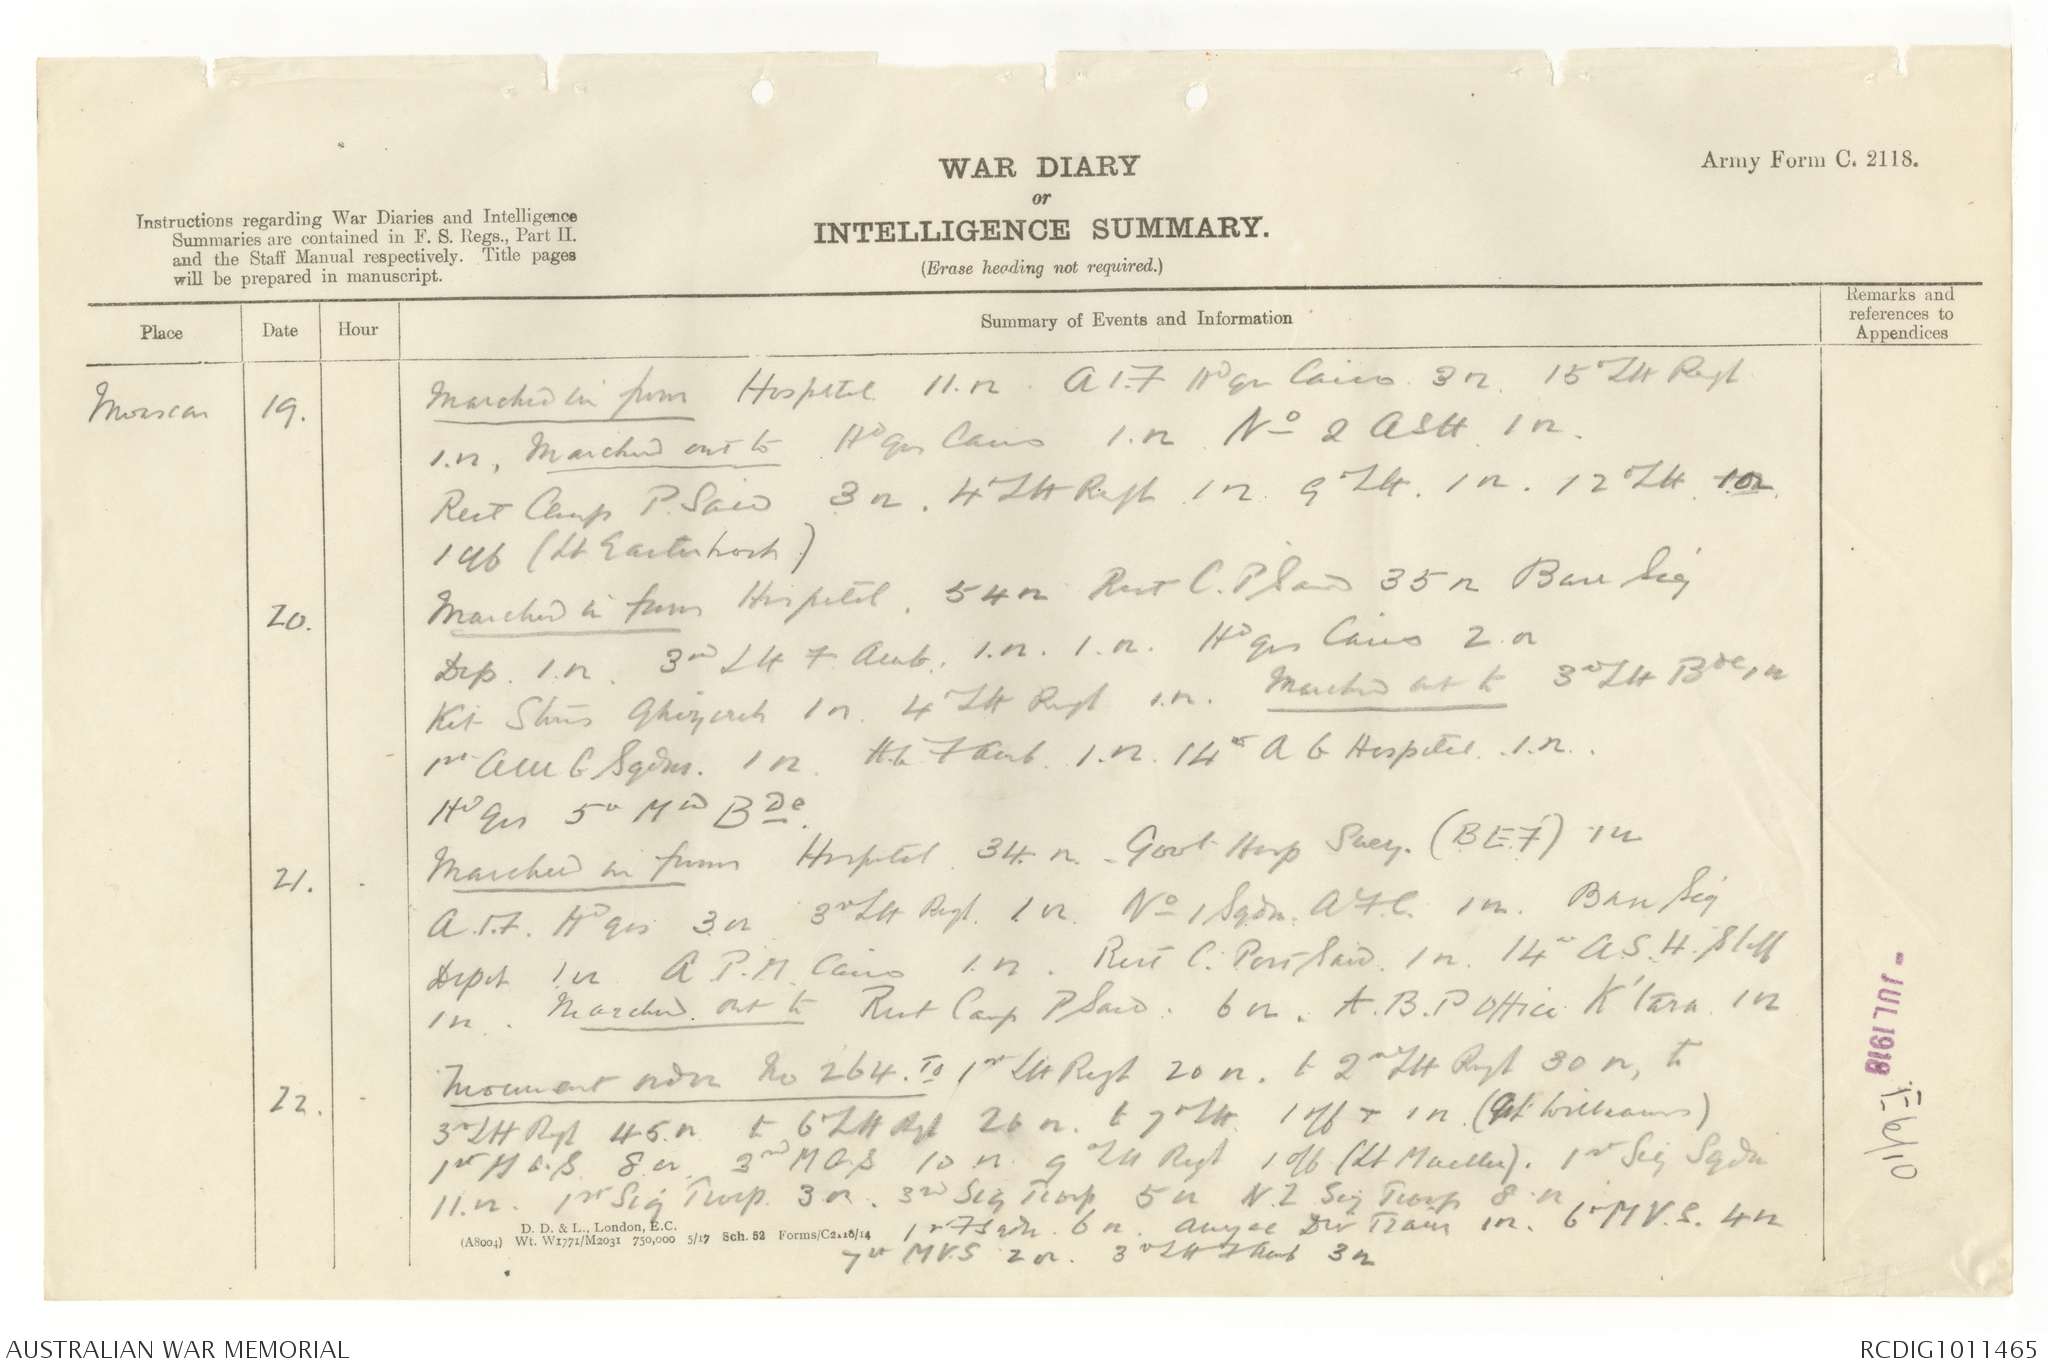 WAR DIARY
or
INTELLIGENCE SUMMARY.
(Erase heading not required.)
Army Form C. 2118.
Instructions regarding War Diaries and Intelligence
Summaries are contained in F. S. Regs., Part II.
and the Staff Manual respectively. Title pages
will be prepared in manuscript.
Place
Date
Hour
Summary of Events and Information
Remarks and
references to
Appendices
Moascar 19. Marched in from Hospital 11. n. A I.F Hd qrs Cairo 3 n. 15th LH Regt
1. n, Marched out to Hd qrs Cairo 1. n No 2 ASH 1 n.
Rest Camp P. Said 3 n. 4th LH Regt 1 n. 9th LH. 1 n. 12th LH
1 off (Lt )
20. Marched in from Hospital. 54 n Rest C. P Said 35 n Base Sig
Dep. 1. n. 3rd LH F. Amb. 1. n. 1. n. Hd qrs Cairo 2 n
Kit Stores Ghizereh 1 n. 4th LH Regt 1. n. Marched out to 3rd LH Bde 1 n
1st Sqdn. 1 n. F Amb. 1. n. 14th A G Hospital. 1. n.
Hd Qrs 5th Md Bde.
21. Marched in from Hospital 34. n. Govt Hosp Suez. (BEF) 1 n
A.I.F. Hd qrs 3 n 3rd LH Regt. 1 n. No 1 Sqdn. A.F.C. 1 n. Base Sig
Depot 1 n A P.M. Cairo 1. n. Rest C. Port Said. 1 n. 14th A.S.H. Staff
1 n. Marched out to Rest Camp P Said. 6 n. A.B.P Office K'tara 1 n
22. Movement order No 264. To 1st LH Regt 20 n. to 2nd LH Regt 30 n, to
3rd LH Rgt 45. n to 6th LH Rgt 26 n. to 7th LH. 1 off + 1 n. (Williams)
1st M G.S. 8 n. 3rd M G.S 10 n. 9th LH Regt 1 off (Lt Mueller). 1st Sig Sqdn
11. n. 1st Sig Troop. 3 n. 3rd Sig Troop 5 n N.Z Sig Troop 8 n
1st F Sqdn. 6 n. Anzac Div Train 1 n. 6th M V.S. 4 n
7th M V.S 2 n. 3rd LH F Amb 3 n
D. D. & L., London, E.C.
(A8004) Wt. W1771/M2031 750,000 5/17 Sch. 52 Forms/C2118/14
- JUL 1918
AUSTRALIAN WAR MEMORIAL
RCDIG1011465